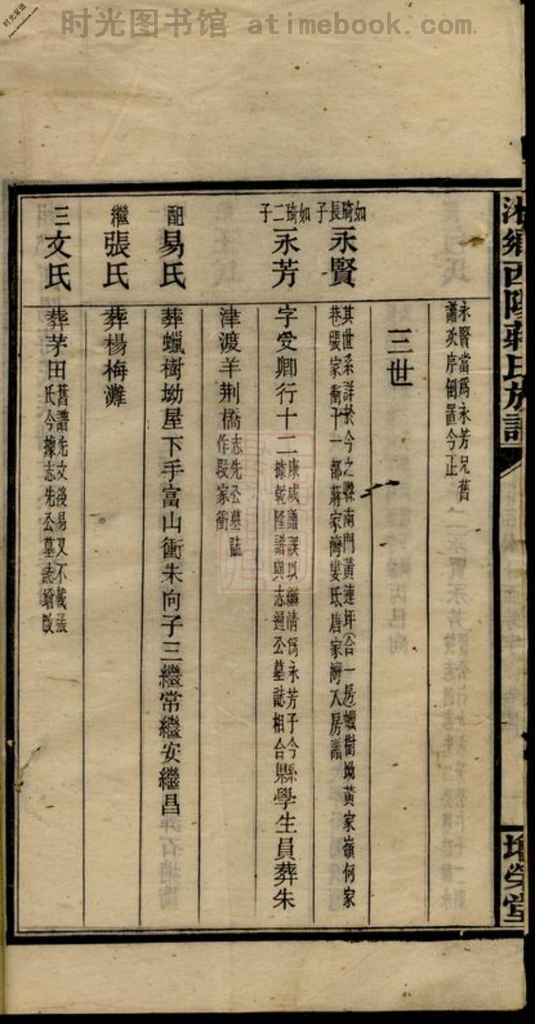 时光图书馆 atimebook.com
湘鄉西陽蔣氏族譜
增榮堂
永賢當爲永芳兄舊
譜次序倒置今正
三世
如琦長子
永賢
其世系詳於今之縣南門黃蓮坪合一房蠟樹坳黃家嶺何家
巷張家衝十一都蔣家灣婁氐唐家灣入房譜
如琦二子
永芳
字受卿行十二
康咸譜誤以繼清爲永芳子今
據乾隆譜與志通公墓誌相合
縣學生員葬朱
津渡羊荆橋
志先公墓誌
作段家衝
配易氏
葬蠟樹坳屋下手富山衝朱向子三繼常繼安繼昌
繼張氏
葬楊梅灘
三文氏
葬茅田
舊譜先文後易又不載張
氏今據志先公墓誌增改